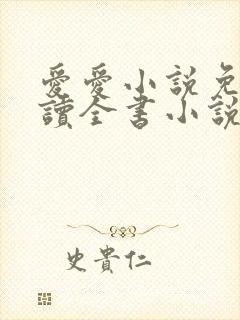 愛愛小說免
讀全書小說
史貴仁